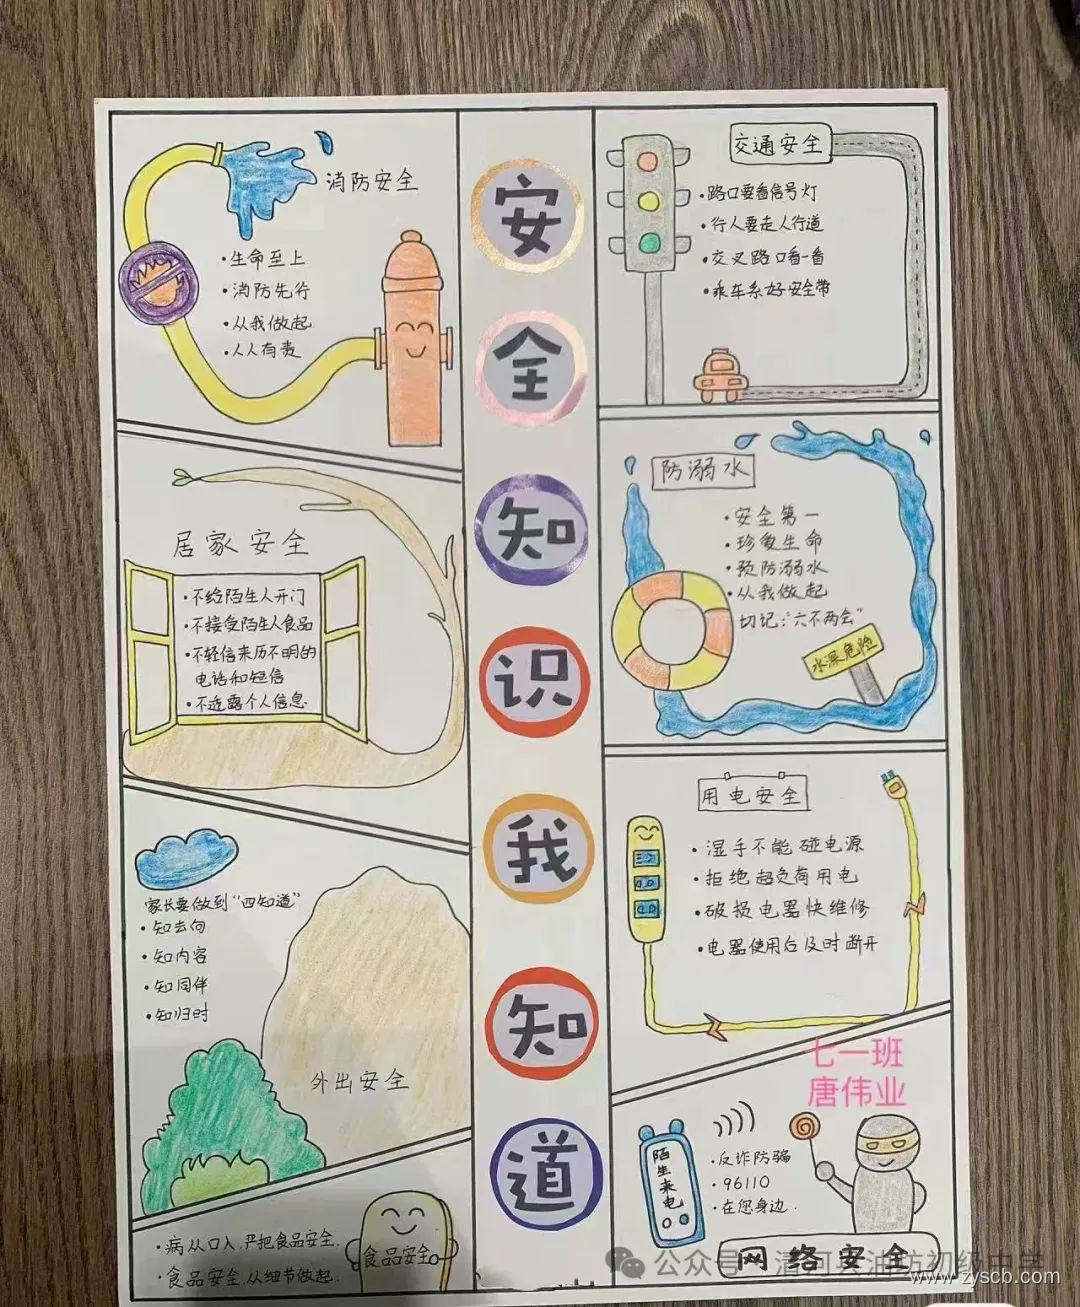 安全知识我知道
消防安全
·生命至上
·消防先行
·从我做起
·人人有责
交通安全
·路口要看信号灯
·行人要走人行道
·交叉路口看一看
·乘车系好安全带
居家安全
·不给陌生人开门
·不接受陌生人食品
·不轻信来历不明的
电话和短信
·不透露个人信息.
防溺水
·安全第一
·珍爱生命
·预防溺水
·从我做起
切记:"六不两会"
水深危险
家长要做到"四知道"
·知去向
·知内容
·知同伴
·知归时
外出安全
用电安全
·湿手不能碰电源
·拒绝超负荷用电
·破损电器快维修
·电器使用后及时断开
七一班
唐伟业
·病从口入,严把食品安全.
·食品安全,从细节做起.
食品安全
陌生来电
·反诈防骗
·96110
·在您身边.
网络安全
公众号·清河县油坊初级中学
www.zyscb.com